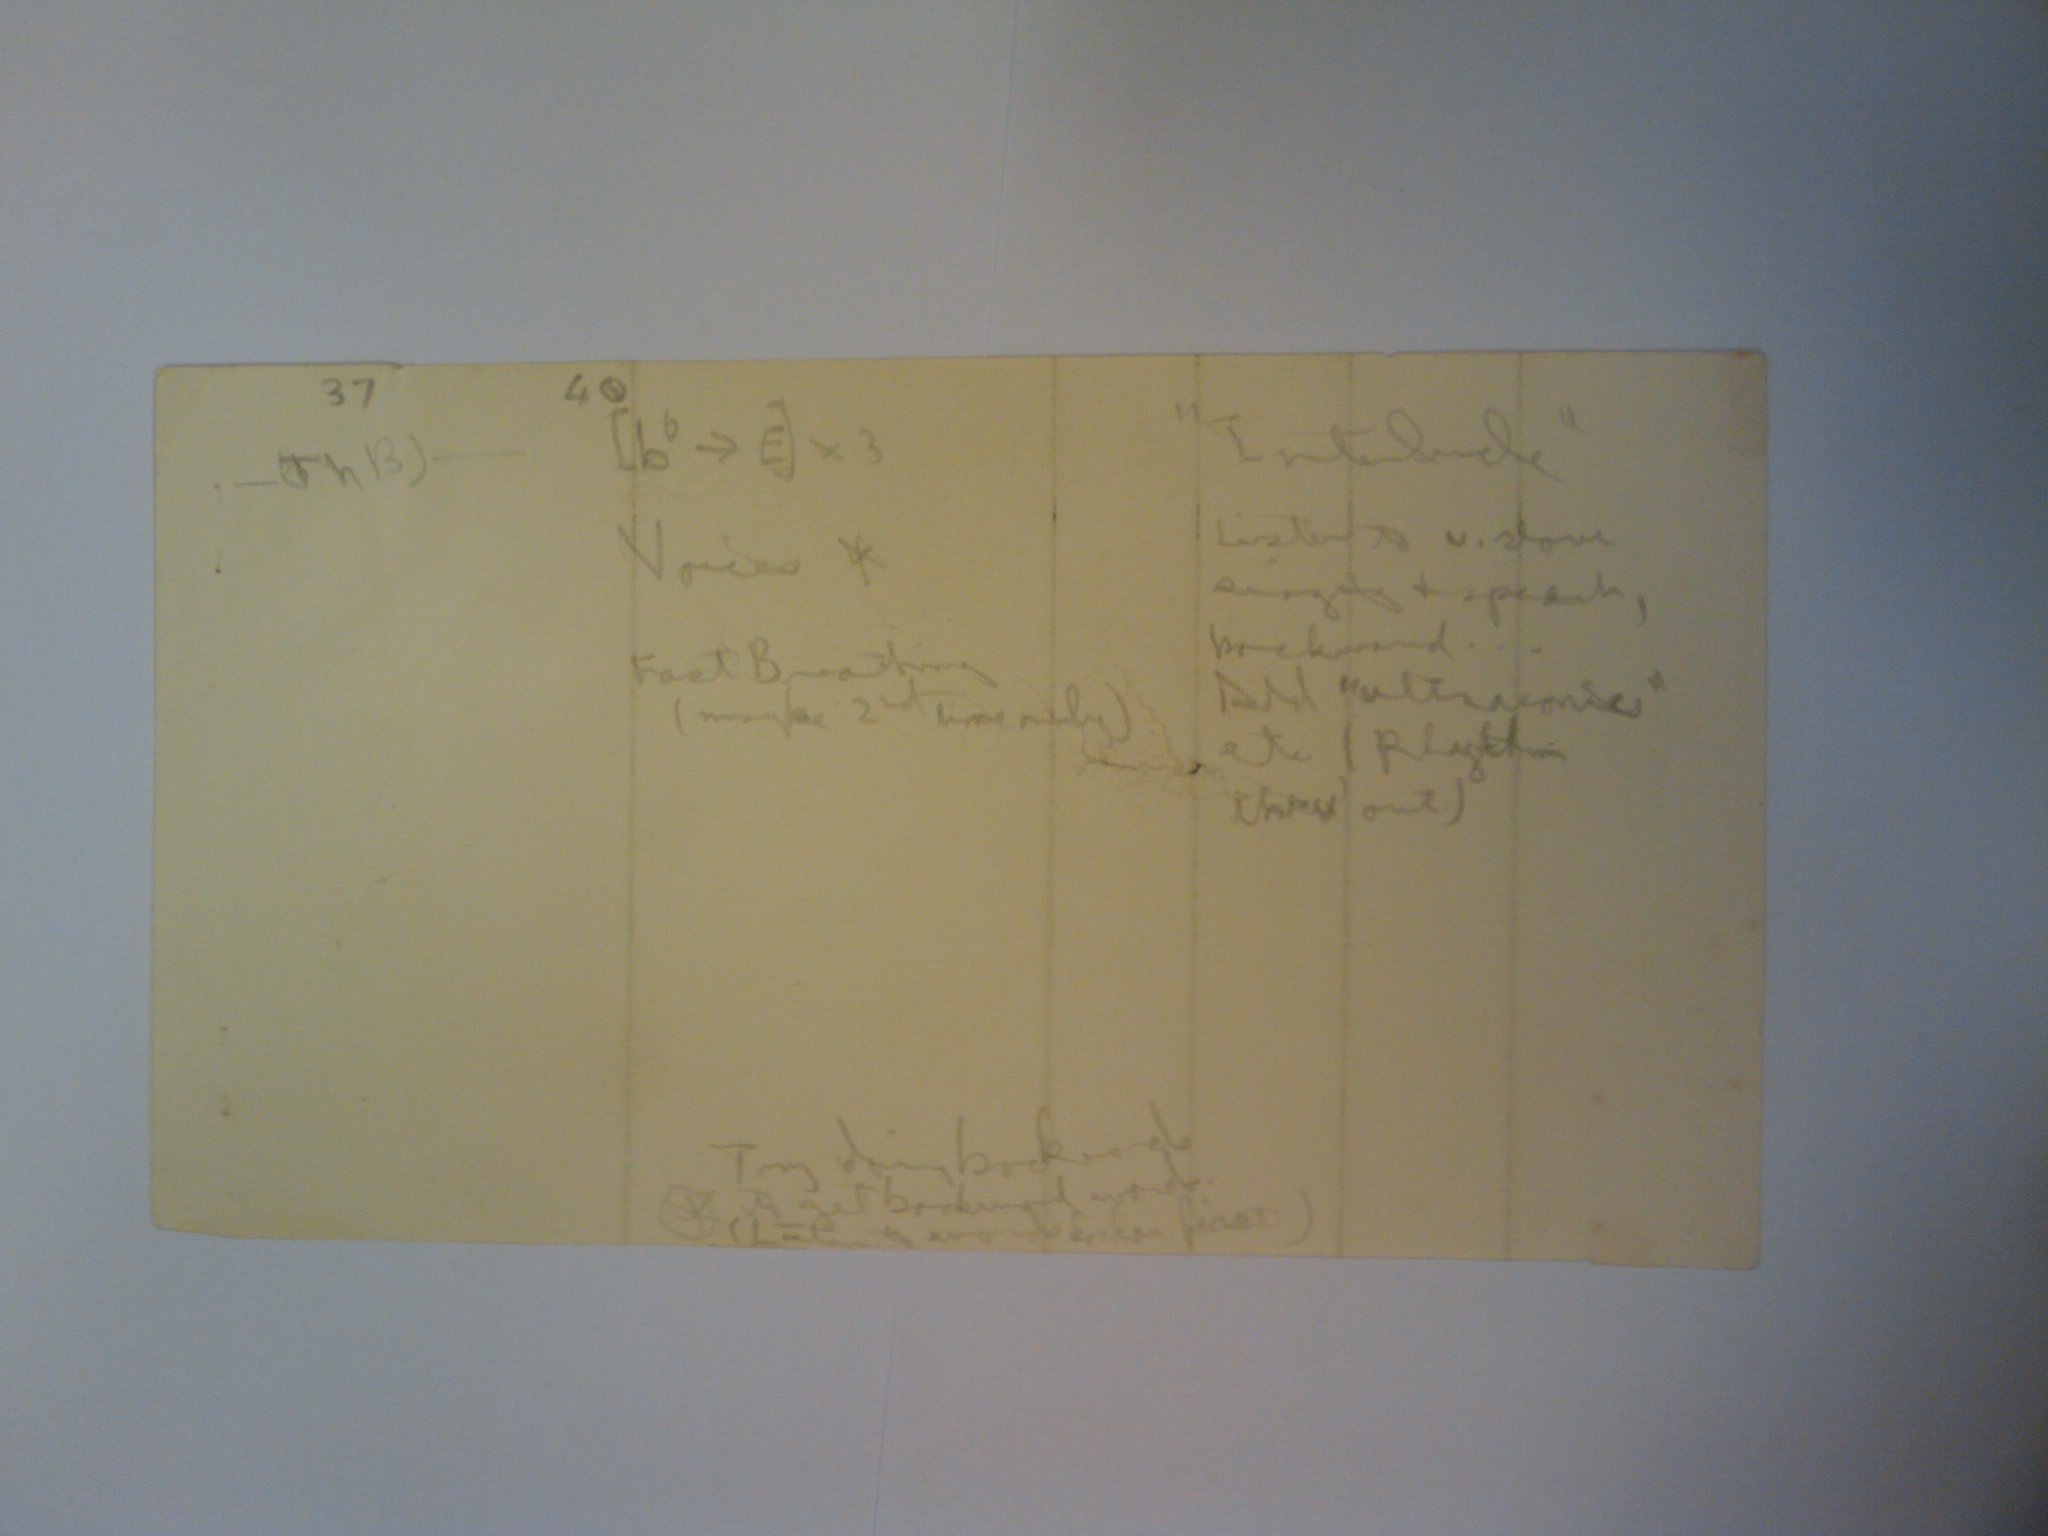 37 40
[b♭ → E] × 3
Voices *
Fast Breathing
(maybe 2nd time only)
"Interlude"
Listen to v. slow
singing + speech,
backward...
Add "ultrasonics"
etc (Rhythm
out)
Tony doing backwards
to get backward
first)